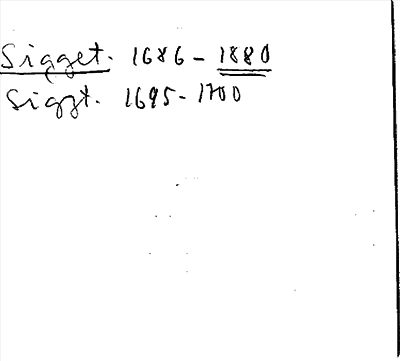 Sigget. 1686 - 1880
Siggt. 1695 - 1700